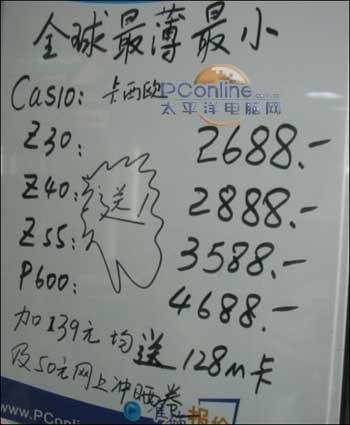 全球最薄最小
Casio: 卡西欧
PConline
太平洋电脑网
Z30: 2688.-
Z40: 送! 2888.-
Z55: 3588.-
P600: 4688.-
加139元均送128m卡
及50元网上冲晒卷
www.PConline
报价